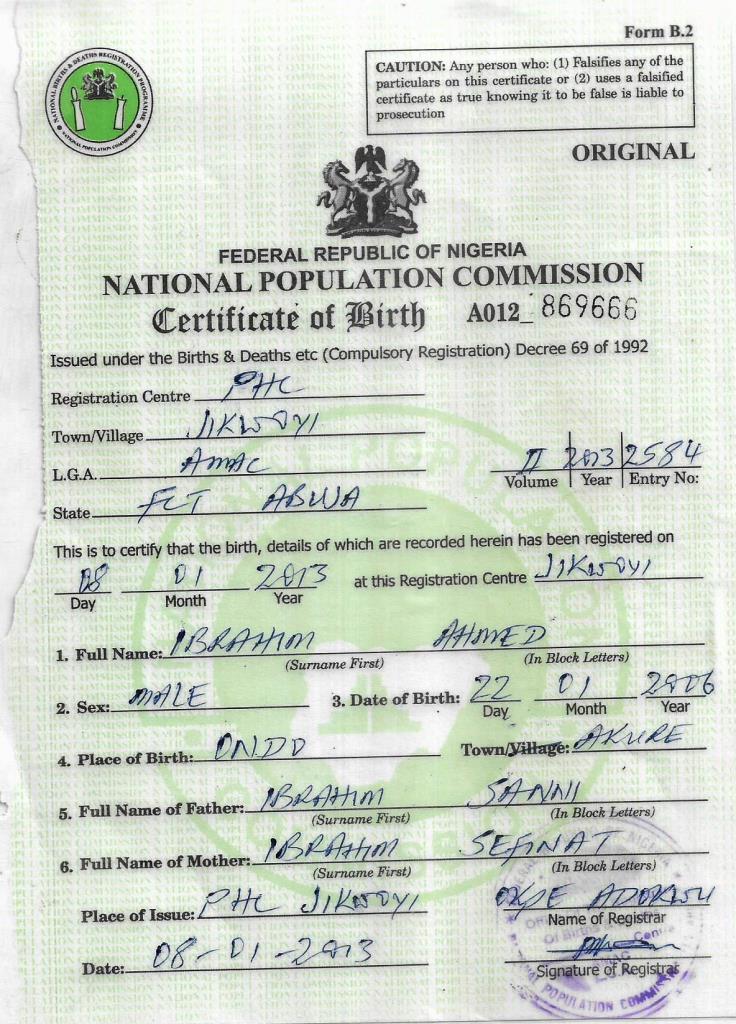 Form B.2
CAUTION: Any person who: (1) Falsifies any of the
particulars on this certificate or (2) uses a falsified
certificate as true knowing it to be false is liable to
prosecution
NATIONAL BIRTHS & DEATHS REGISTRATION PROGRAMME
NATIONAL POPULATION COMMISSION
ORIGINAL
FEDERAL REPUBLIC OF NIGERIA
NATIONAL POPULATION COMMISSION
Certificate of Birth A012_ 869666
Issued under the Births & Deaths etc (Compulsory Registration) Decree 69 of 1992
Registration Centre PHC
Town/Village JIKWOYI
L.G.A. AMAC
II 2013 2584
Volume Year Entry No:
State FCT ABUJA
This is to certify that the birth, details of which are recorded herein has been registered on
08 01 2013 at this Registration Centre JIKWOYI
Day Month Year
1. Full Name: IBRAHIM AHMED
(Surname First) (In Block Letters)
2. Sex: MALE 3. Date of Birth: 22 01 2006
Day Month Year
4. Place of Birth: ONDO Town/Village: AKURE
5. Full Name of Father: IBRAHIM SANNI
(Surname First) (In Block Letters)
6. Full Name of Mother: IBRAHIM SEFINAT
(Surname First) (In Block Letters)
Place of Issue: PHC JIKWOYI
Name of Registrar
Date: 08-01-2013
Signature of Registrar
POPULATION COMMISSION